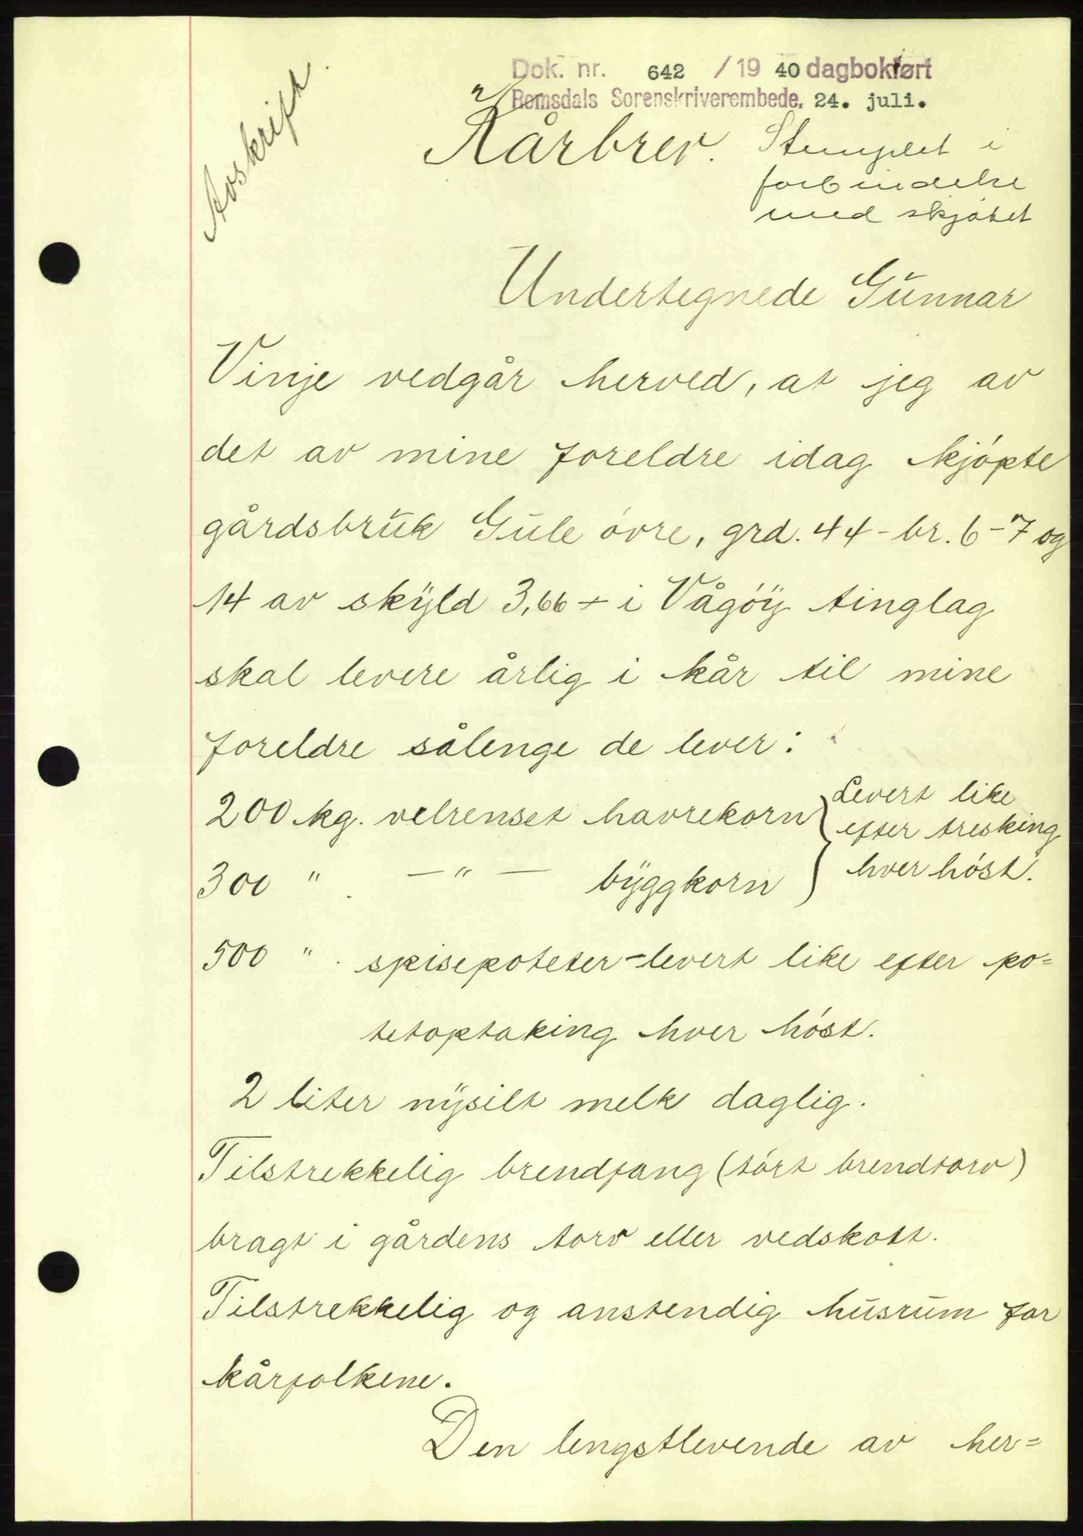 Avskrift.
Dok. nr. 642 / 19 40 dagbokført
Romsdals Sorenskriverembede, 24. juli.
Kårbrev.
Stemplet i
forbindelse
med skjøtet
Undertegnede Gunnar
Vinje vedgår herved, at jeg av
det av mine foreldre idag kjøpte
gårdsbruk Gule øvre, grd. 44 - br. 6 - 7 og
14 av skyld 3,66 + i Vågøy tinglag
skal levere årlig i kår til mine
foreldre sålenge de lever:
200 kg. velrenset havrekorn } Levert like
efter tresking
300 " . — " — byggkorn } hver høst.
500 " . spisepoteter - levert like efter po=
tetoptaking hver høst.
2 liter nysilt melk daglig.
Tilstrekkelig brendfang (tørt brendtorv)
bragt i gårdens torv eller vedskott.
Tilstrekkelig og anstendig husrum for
kårfolkene.
Den lengstlevende av her=